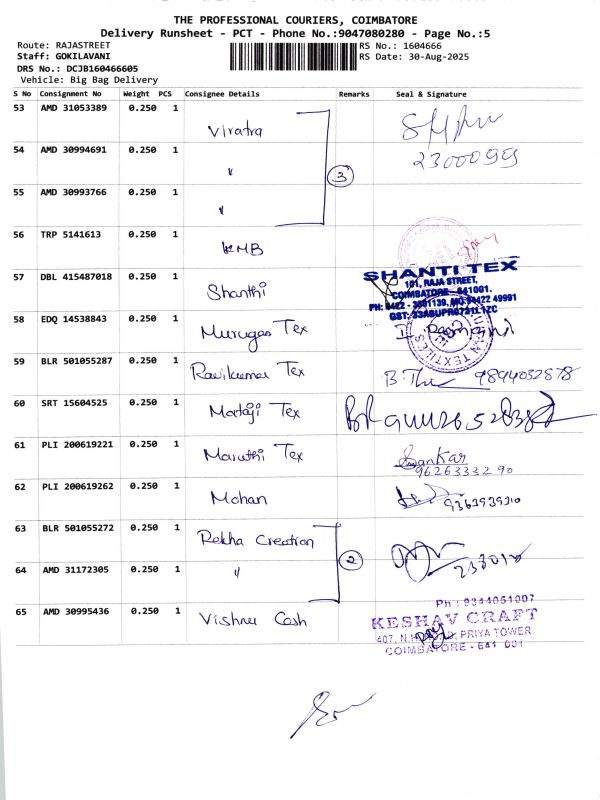 THE PROFESSIONAL COURIERS, COIMBATORE
Delivery Runsheet - PCT - Phone No.:9047080280 - Page No.:5
Route: RAJASTREET
Staff: GOKILAVANI
DRS No.: DCJB160466605
Vehicle: Big Bag Delivery
RS No.: 1604666
RS Date: 30-Aug-2025
S No Consignment No Weight PCS Consignee Details Remarks Seal & Signature
53 AMD 31053389 0.250 1 Viratra
54 AMD 30994691 0.250 1 " 3 2300099
55 AMD 30993766 0.250 1 "
56 TRP 5141613 0.250 1 KMB
57 DBL 415487018 0.250 1 Shanthi
SHANTI TEX
101, RAJA STREET,
COIMBATORE - 641001.
58 EDQ 14538843 0.250 1 Murugan Tex
59 BLR 501055287 0.250 1 Ravikumar Tex 9894032878
60 SRT 15604525 0.250 1 Mataji Tex
61 PLI 200619221 0.250 1 Maruthi Tex Sankar
9626333290
62 PLI 200619262 0.250 1 Mohan
63 BLR 501055272 0.250 1 Rekha Creation 2
64 AMD 31172305 0.250 1 "
65 AMD 30995436 0.250 1 Vishnu Cash
Ph : 9344051007
KESHAV CRAFT
PRIYA TOWER,
COIMBATORE - 641 001